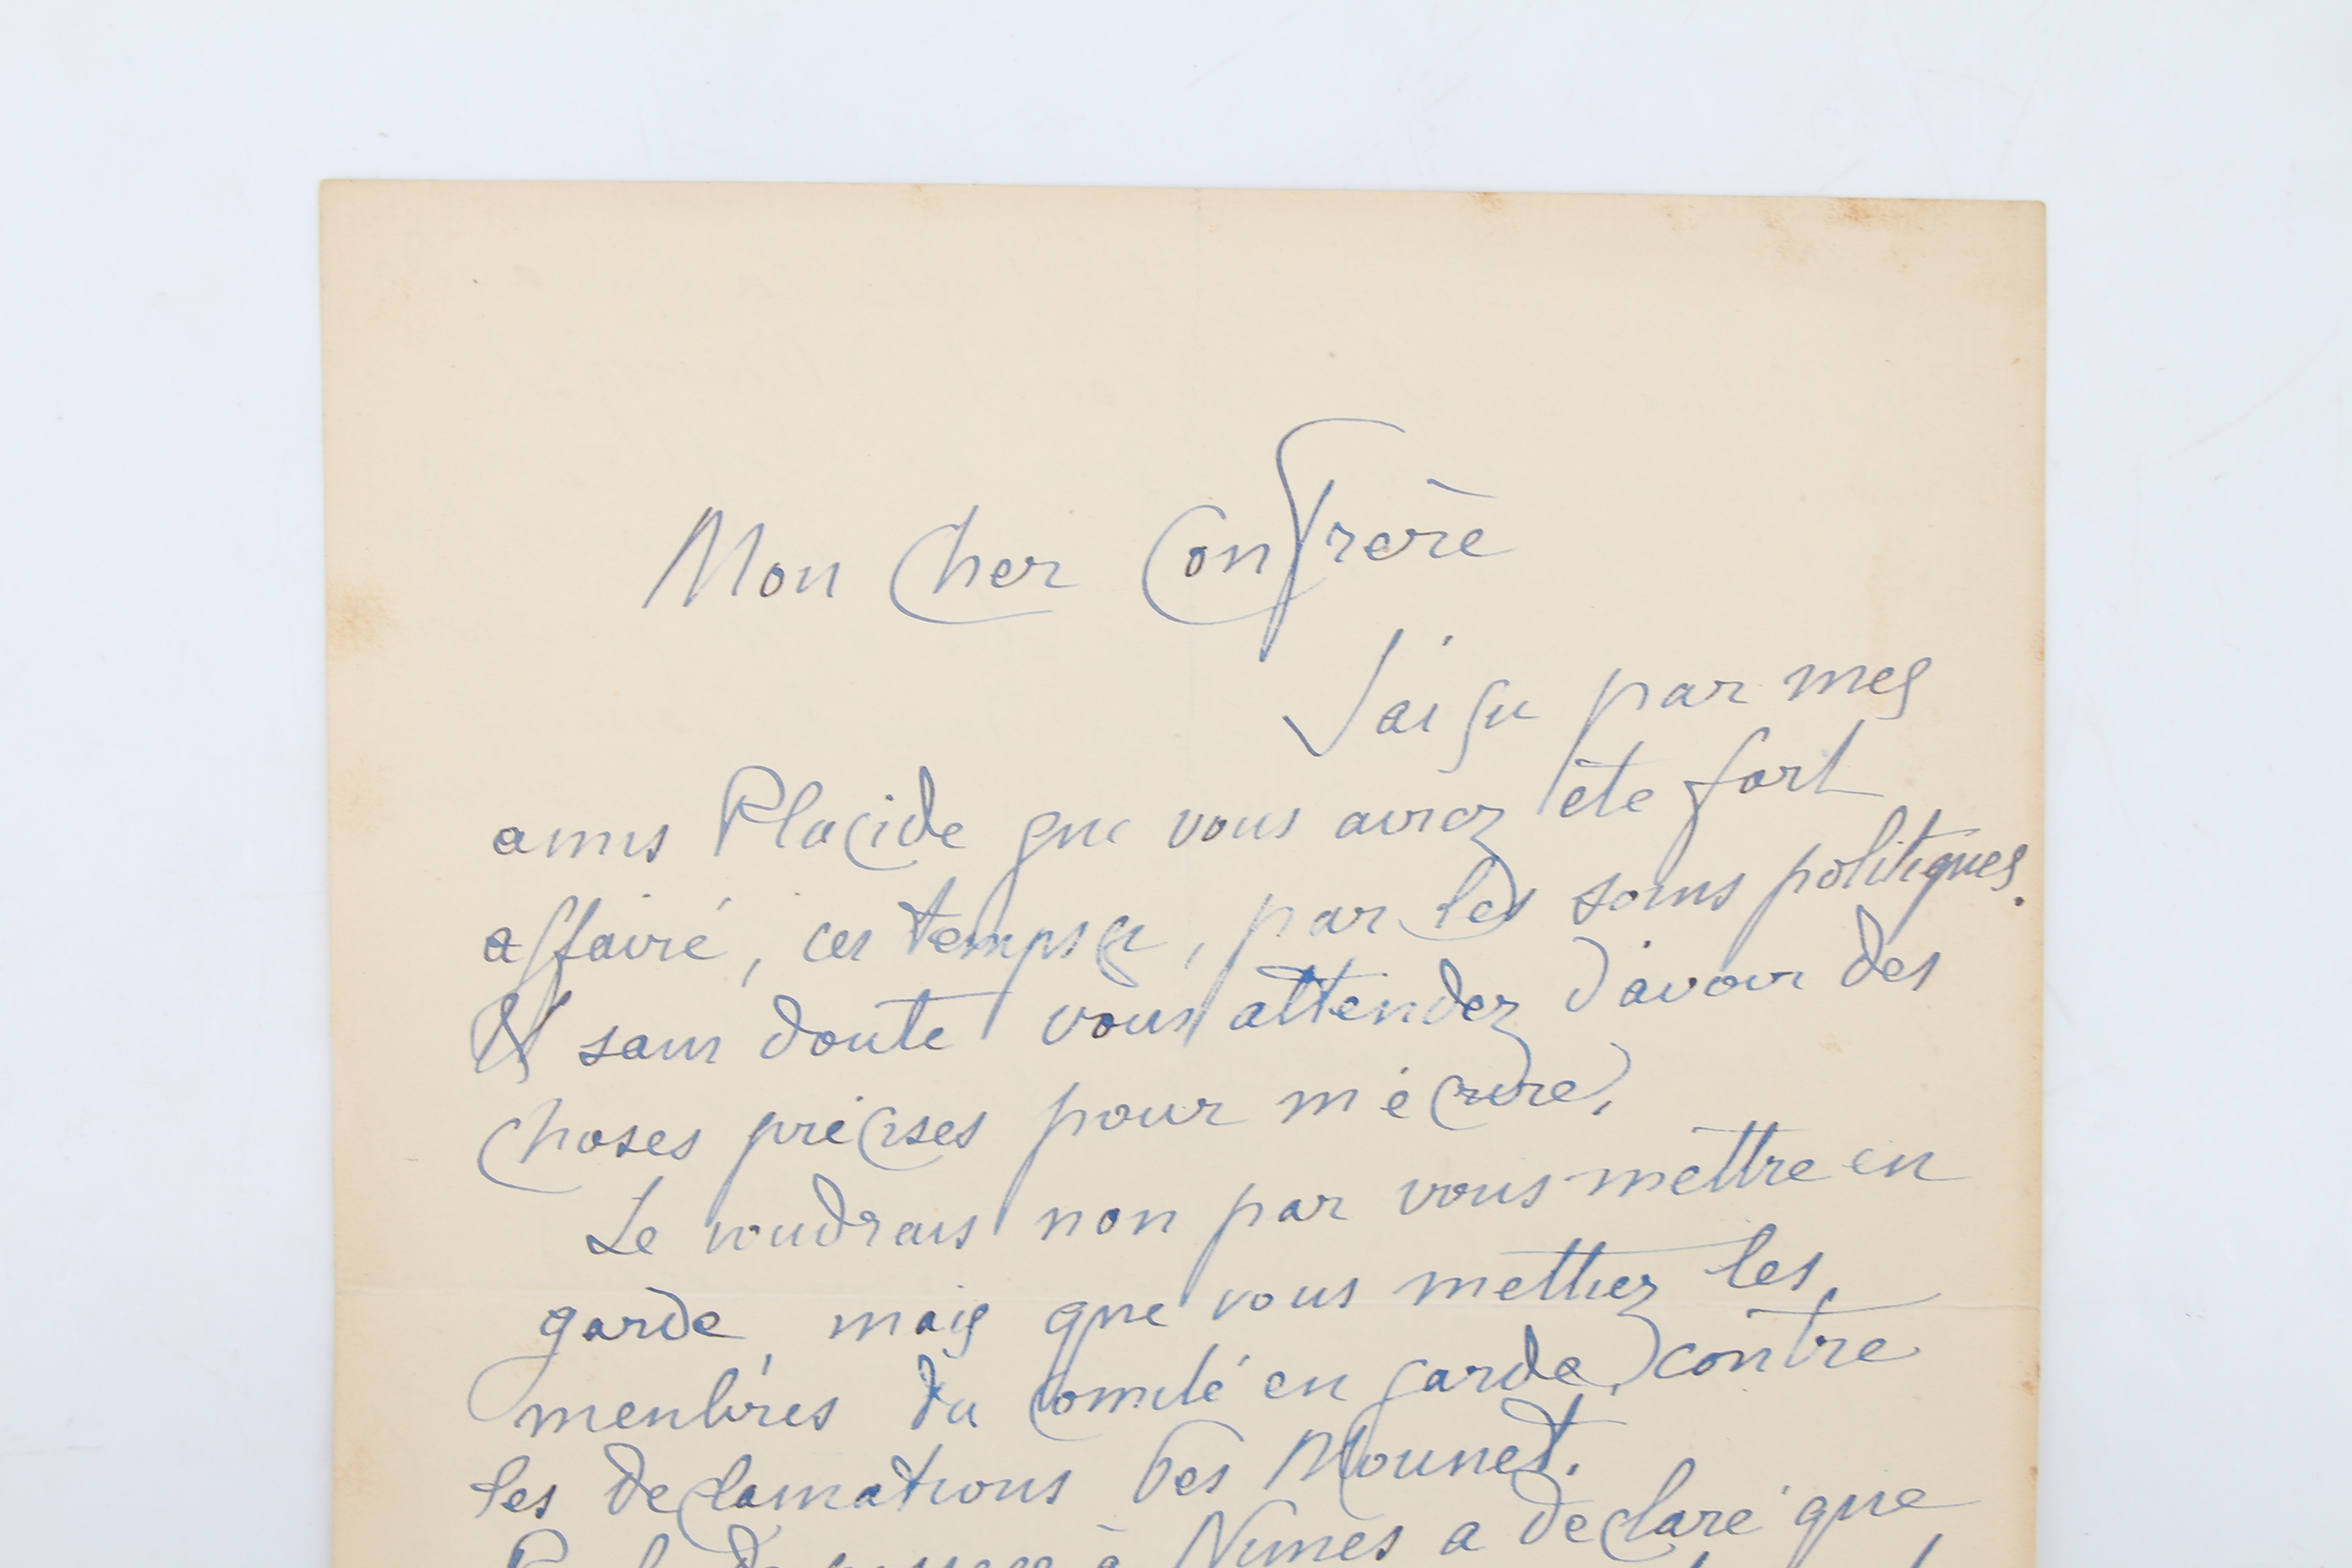 Mon cher Confrère
J'ai su par mes
amis Placide que vous aviez été fort
affairé, ces temps ci, par les soins politiques.
Et sans doute vous attendez d'avoir des
choses précises pour m'écrire.
Je voudrais non pas vous mettre en
garde, mais que vous mettiez les
membres du Comité en garde, contre
les déclamations des Mounet.
à Nimes a declaré que